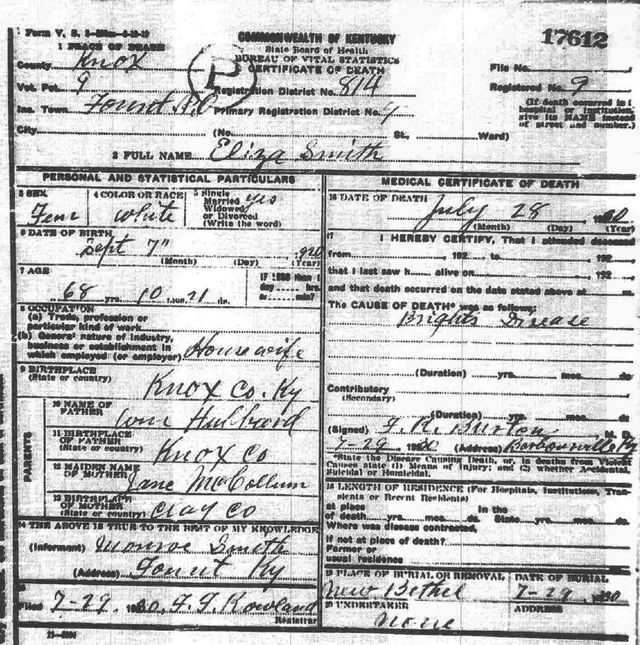 Form V. S.
COMMONWEALTH OF KENTUCKY
State Board of Health
BUREAU OF VITAL STATISTICS
CERTIFICATE OF DEATH
17612
1 PLACE OF DEATH
County Knox
File No.
Vot. Pct. 9
Registration District No. 814
Registered No. 9
Inc. Town Fount P.O
Primary Registration District No.
(If death occurred in a hospital or institution give its NAME instead of street and number.)
City (No. St., Ward)
2 FULL NAME Eliza Smith
PERSONAL AND STATISTICAL PARTICULARS
3 SEX Fem
4 COLOR OR RACE White
5 Single Married Widowed or Divorced (Write the word) yes
6 DATE OF BIRTH
Sept 7"
(Month) (Day) (Year)
7 AGE
68 yrs. 10 mos. 21 ds.
IF LESS than 1 day hrs. or min?
8 OCCUPATION
(a) Trade, profession or particular kind of work
(b) General nature of industry, business or establishment in which employed (or employer) House wife
9 BIRTHPLACE (State or country) Knox Co. Ky
PARENTS
10 NAME OF FATHER Wm Hubbard
11 BIRTHPLACE OF FATHER (State or country) Knox Co
12 MAIDEN NAME OF MOTHER Jane McCollum
13 BIRTHPLACE OF MOTHER (State or country) Clay Co
14 THE ABOVE IS TRUE TO THE BEST OF MY KNOWLEDGE
(Informant) Monroe Smith
(Address) Fount Ky
Filed 7-29, Rowland
Registrar
MEDICAL CERTIFICATE OF DEATH
16 DATE OF DEATH
July 28
(Month) (Day) (Year)
17 I HEREBY CERTIFY, That I attended deceased
from , 192 to , 192
that I last saw h alive on , 192
and that death occurred on the date stated above at m.
The CAUSE OF DEATH* was as follows:
Brights Disease
(Duration) yrs. mos. ds.
Contributory
(Secondary)
(Duration) yrs. mos. ds.
(Signed) Burton M. D.
7-29 (Address) Barbourville Ky
*State the Disease Causing Death, or, in deaths from Violent Causes state (1) Means of Injury; and (2) whether Accidental, Suicidal or Homicidal.
18 LENGTH OF RESIDENCE (For Hospitals, Institutions, Transients or Recent Residents)
At place of death yrs. mos. ds. In the State yrs. mos. ds.
Where was disease contracted,
if not at place of death?
Former or usual residence
19 PLACE OF BURIAL OR REMOVAL New Bethel
DATE OF BURIAL 7-29
20 UNDERTAKER none
ADDRESS